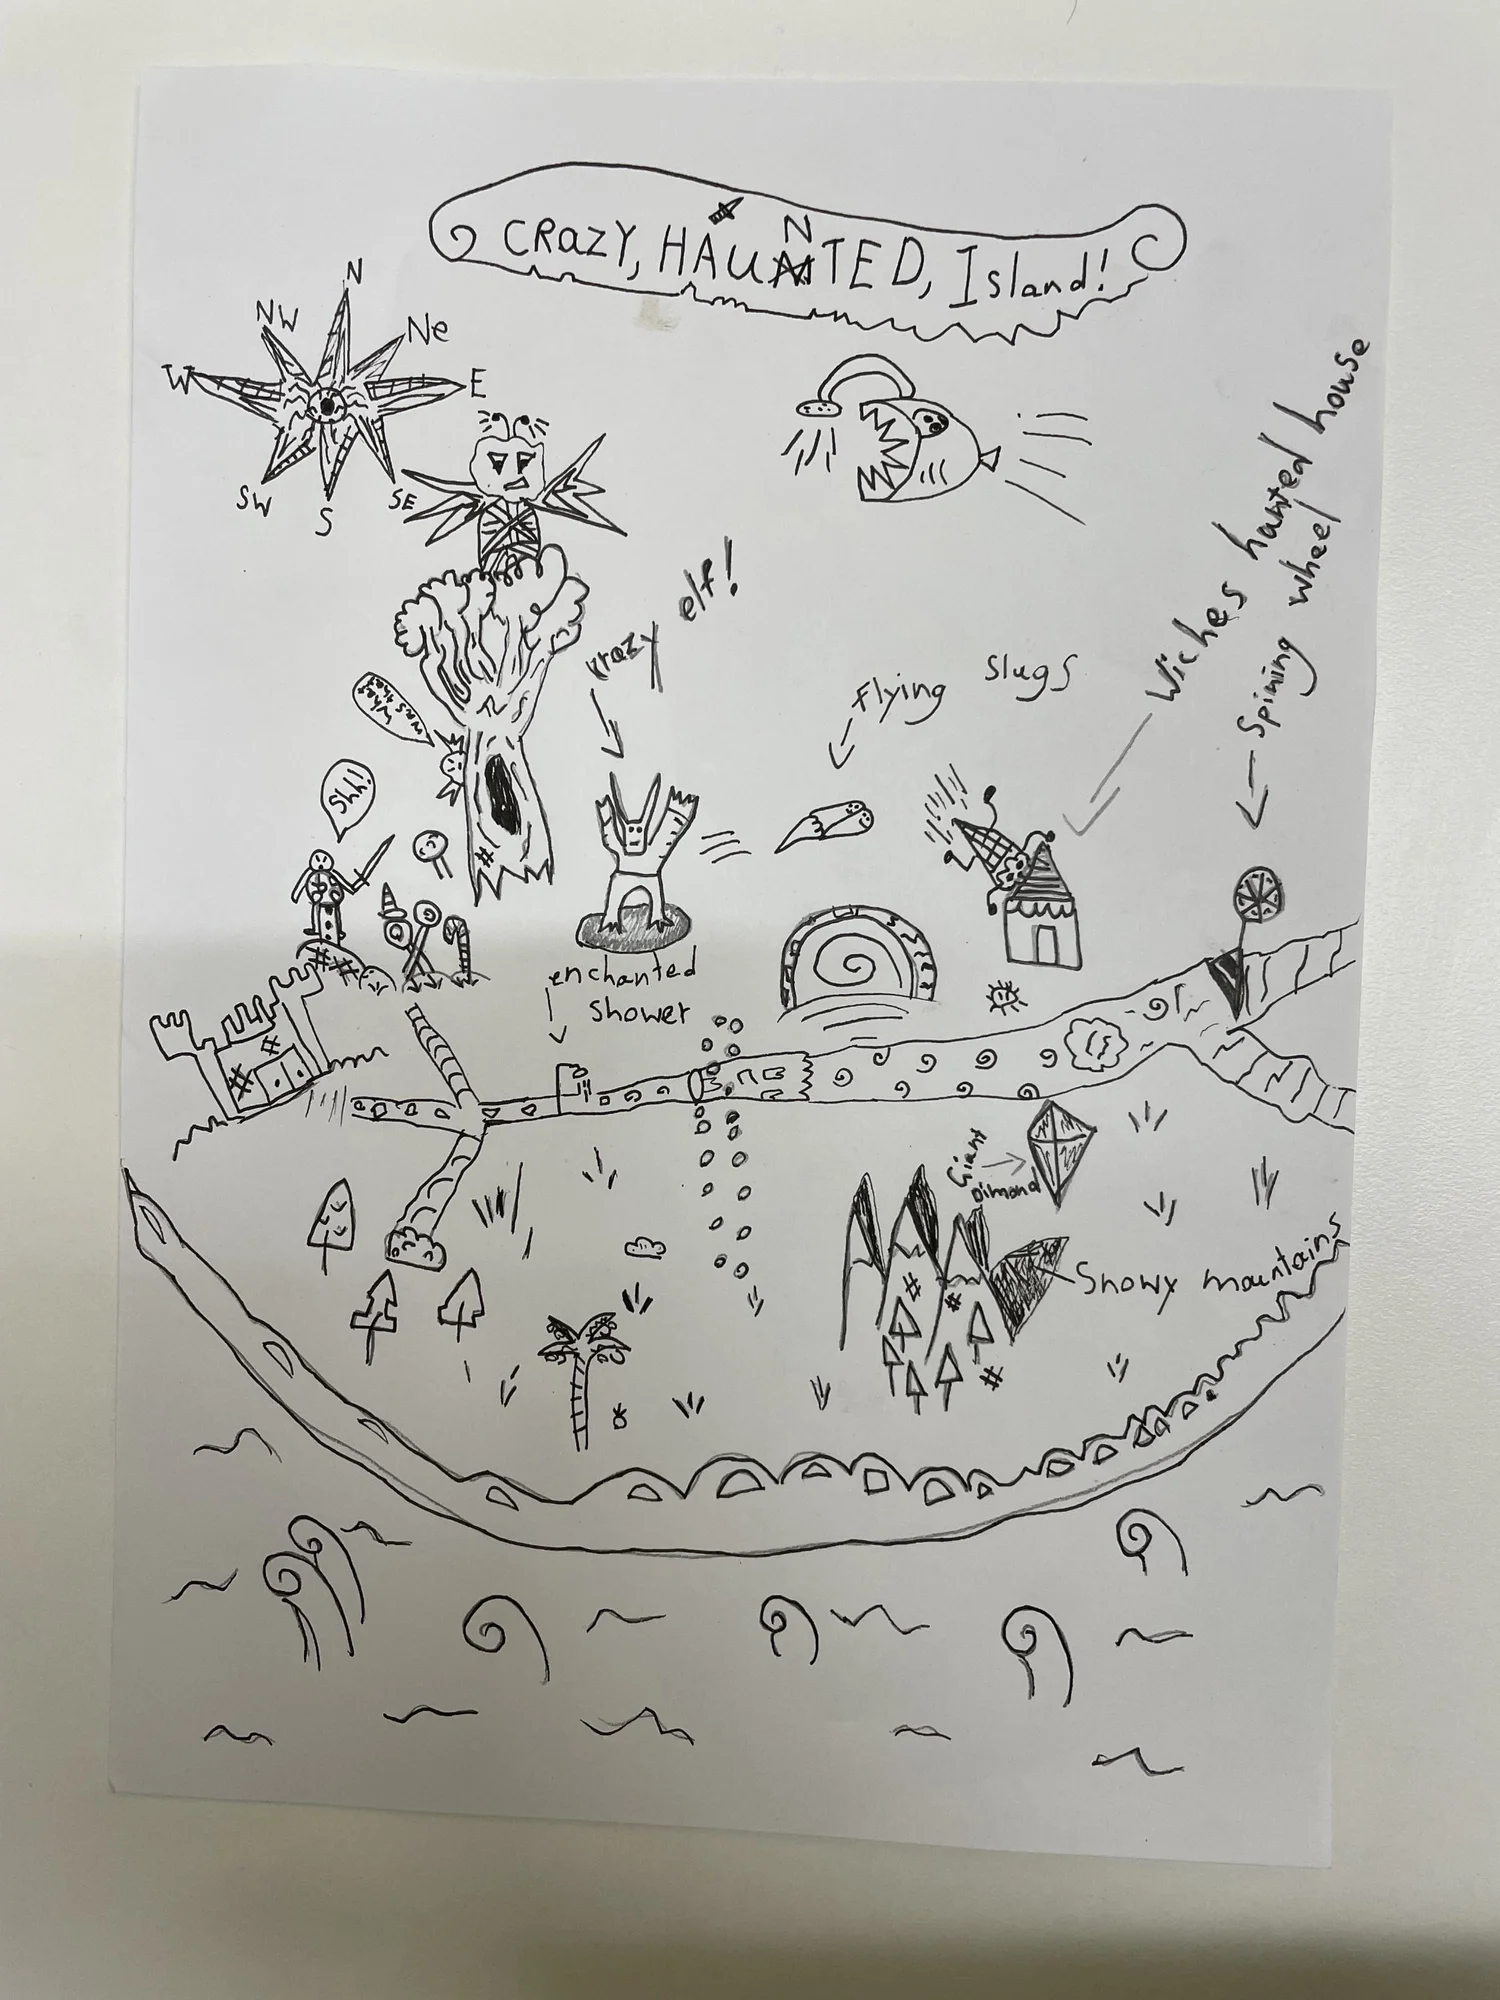 CRazY, HAUNTED, Island!
N
NW
Ne
W
E
SW
S
SE
crazy elf!
flying slugs
Wiches haunted house
Spining wheel
What
was that
Shh!
enchanted
shower
Giant
Dimond
Snowy mountains